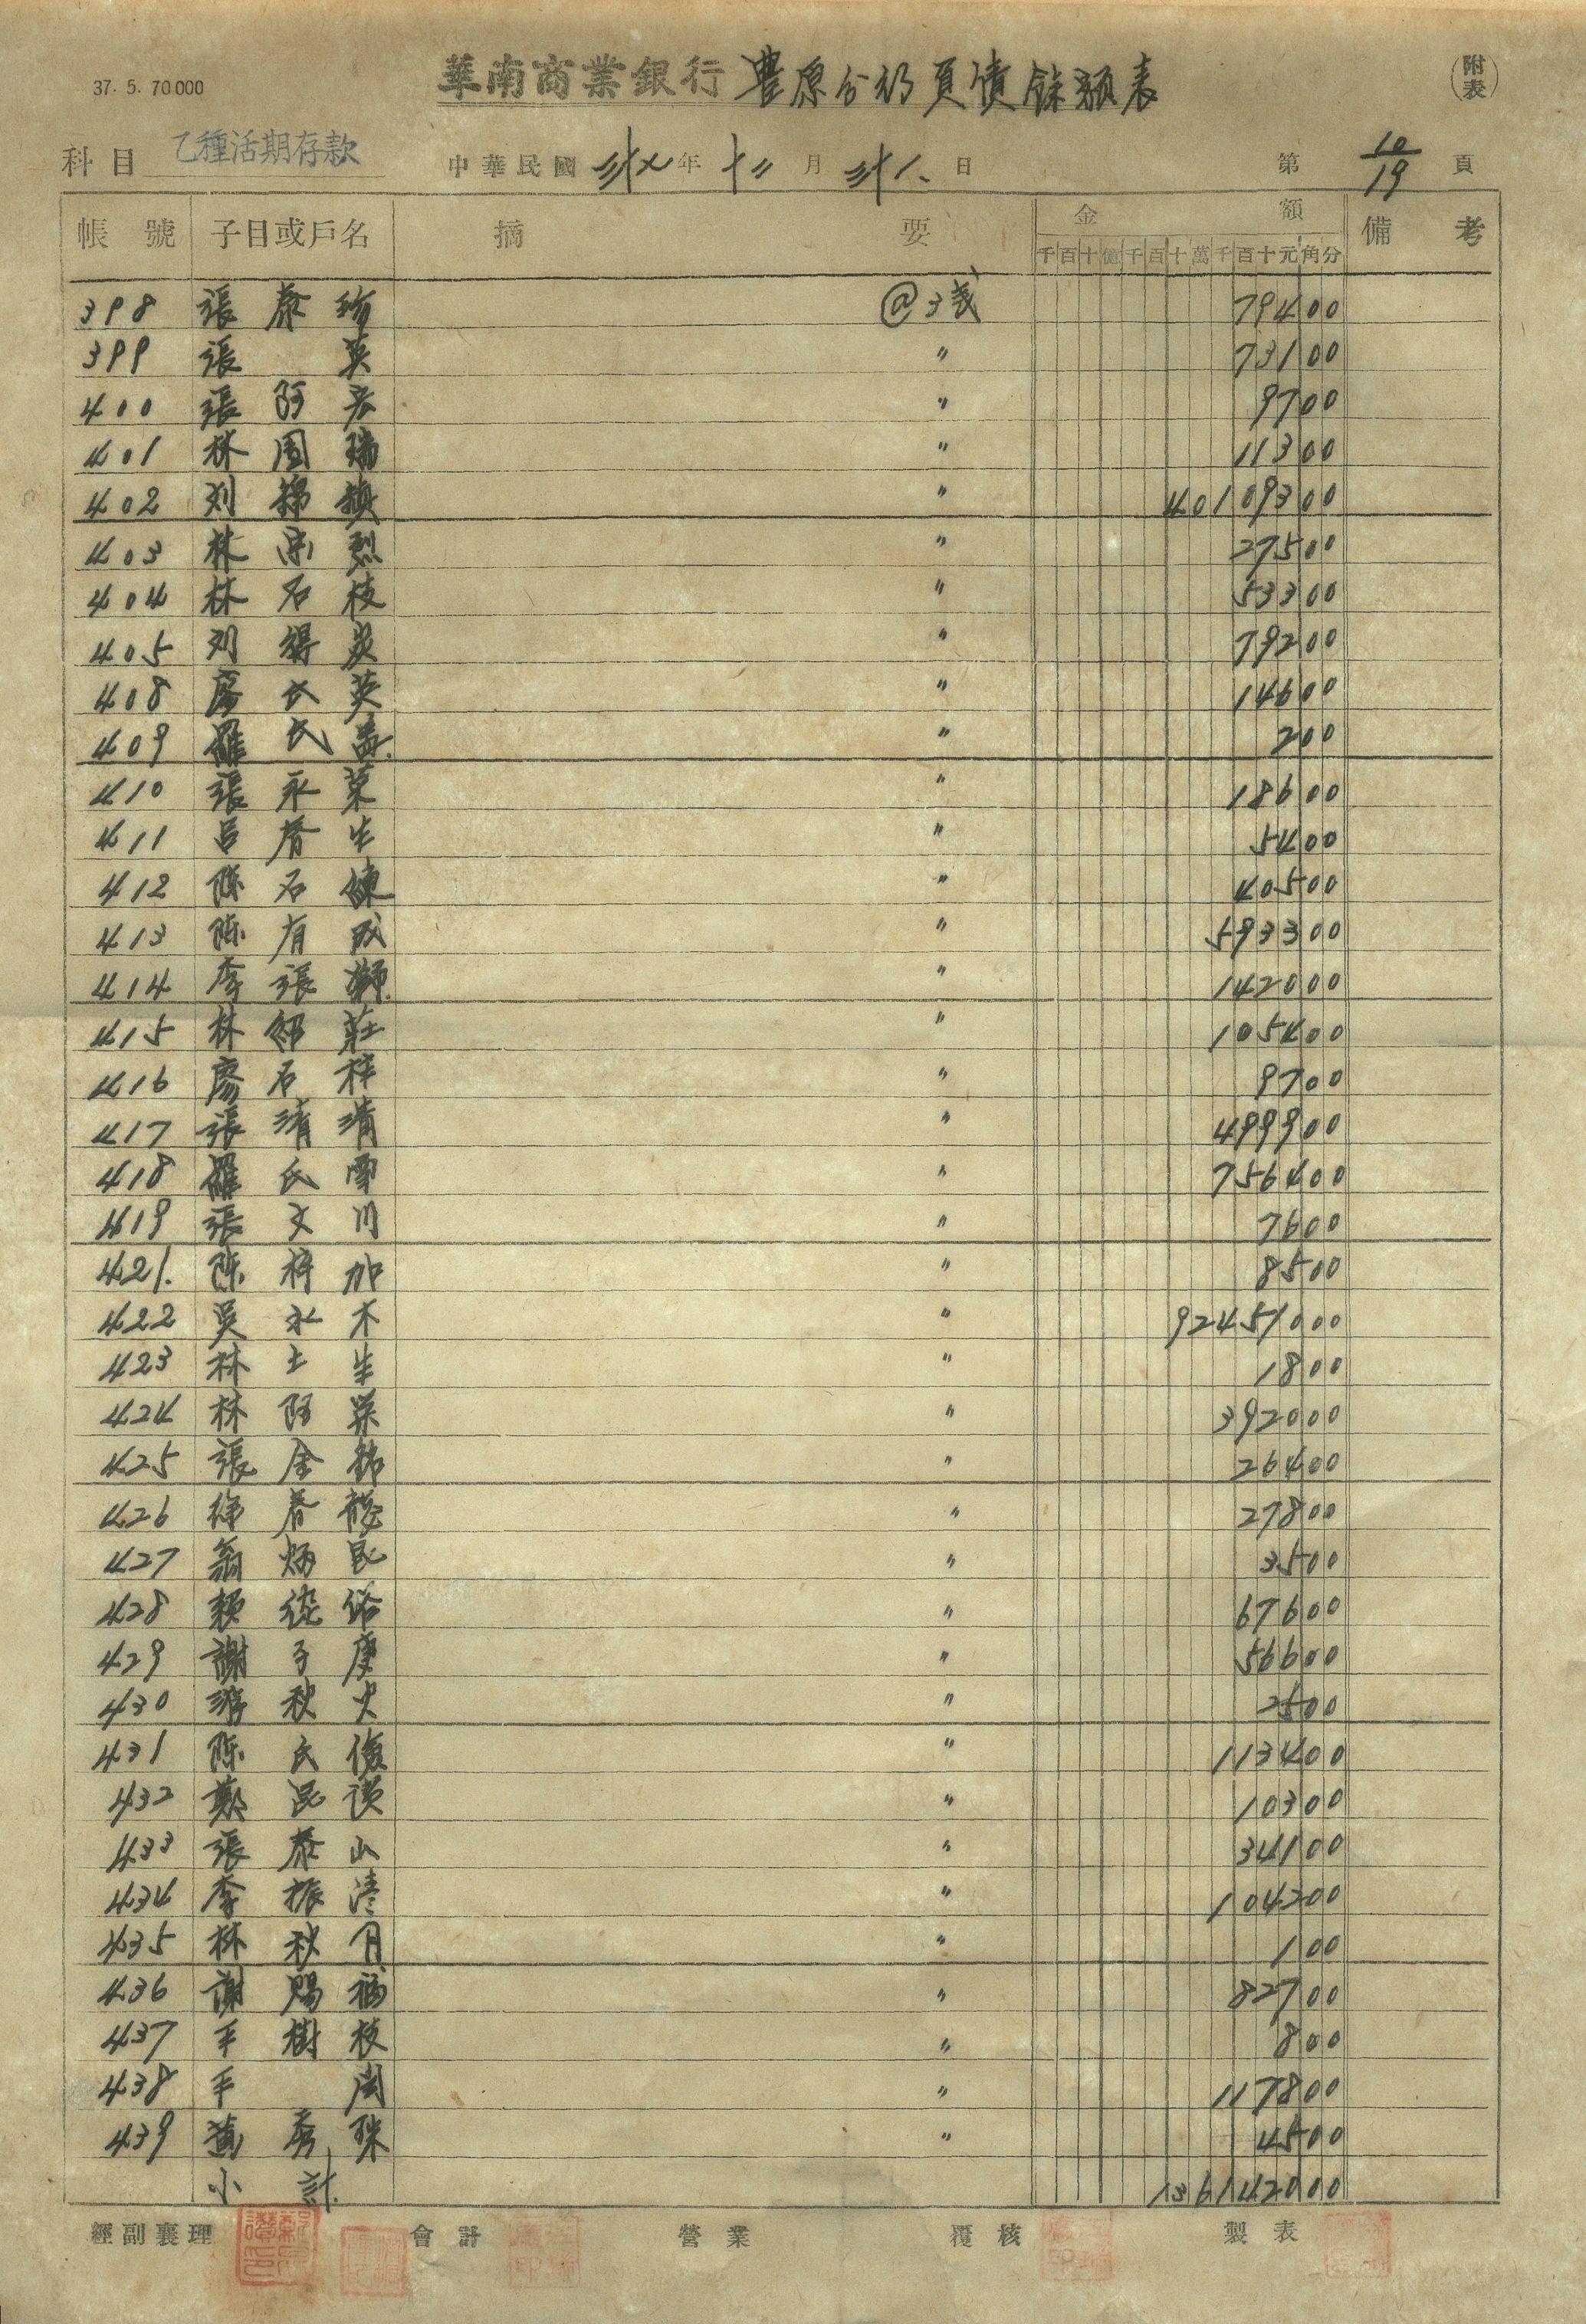 37. 5. 70000
華南商業銀行 豊原分行負債餘額表
(附表)
科目 乙種活期存款 中華民國 卅七 年 十二 月 卅一 日 第 10/19 頁
帳號 子目或戶名 摘要 金額 備考
千百十億千百十萬千百十元角分
398 張泰珍 @3戔 79400
399 張英 73100
400 張阿 9700
401 林国瑞 11300
402 刘錦 40109300
403 林宗烈 27500
404 林石枝 53300
405 刘得炭 79200
408 廖氏英 14600
409 羅氏 200
410 張永菜 18600
411 呂春生 5400
412 陈石練 40500
413 陈有成 593300
414 李張獅 142000
415 林紹莊 105400
416 廖石梓 9700
417 張清清 499900
418 羅氏雪 756400
419 張文川 7600
421. 陈梓加 8500
422 吳水木 92451000
423 林土生 1800
424 林阿菜 392000
425 張金錦 26400
426 徐春龍 27800
427 翁炳昆 3500
428 賴從俗 67600
429 謝子康 56600
430 游秋火 2500
431 陈氏俊 113400
432 鄭昆讃 10300
433 張泰山 34100
434 李振清 104200
435 林秋月 100
436 謝賜福 82700
437 王樹枝 800
438 王闰 117800
439 黃秀珠 4500
小計 136142000
經副襄理 會計 營業 覆核 製表